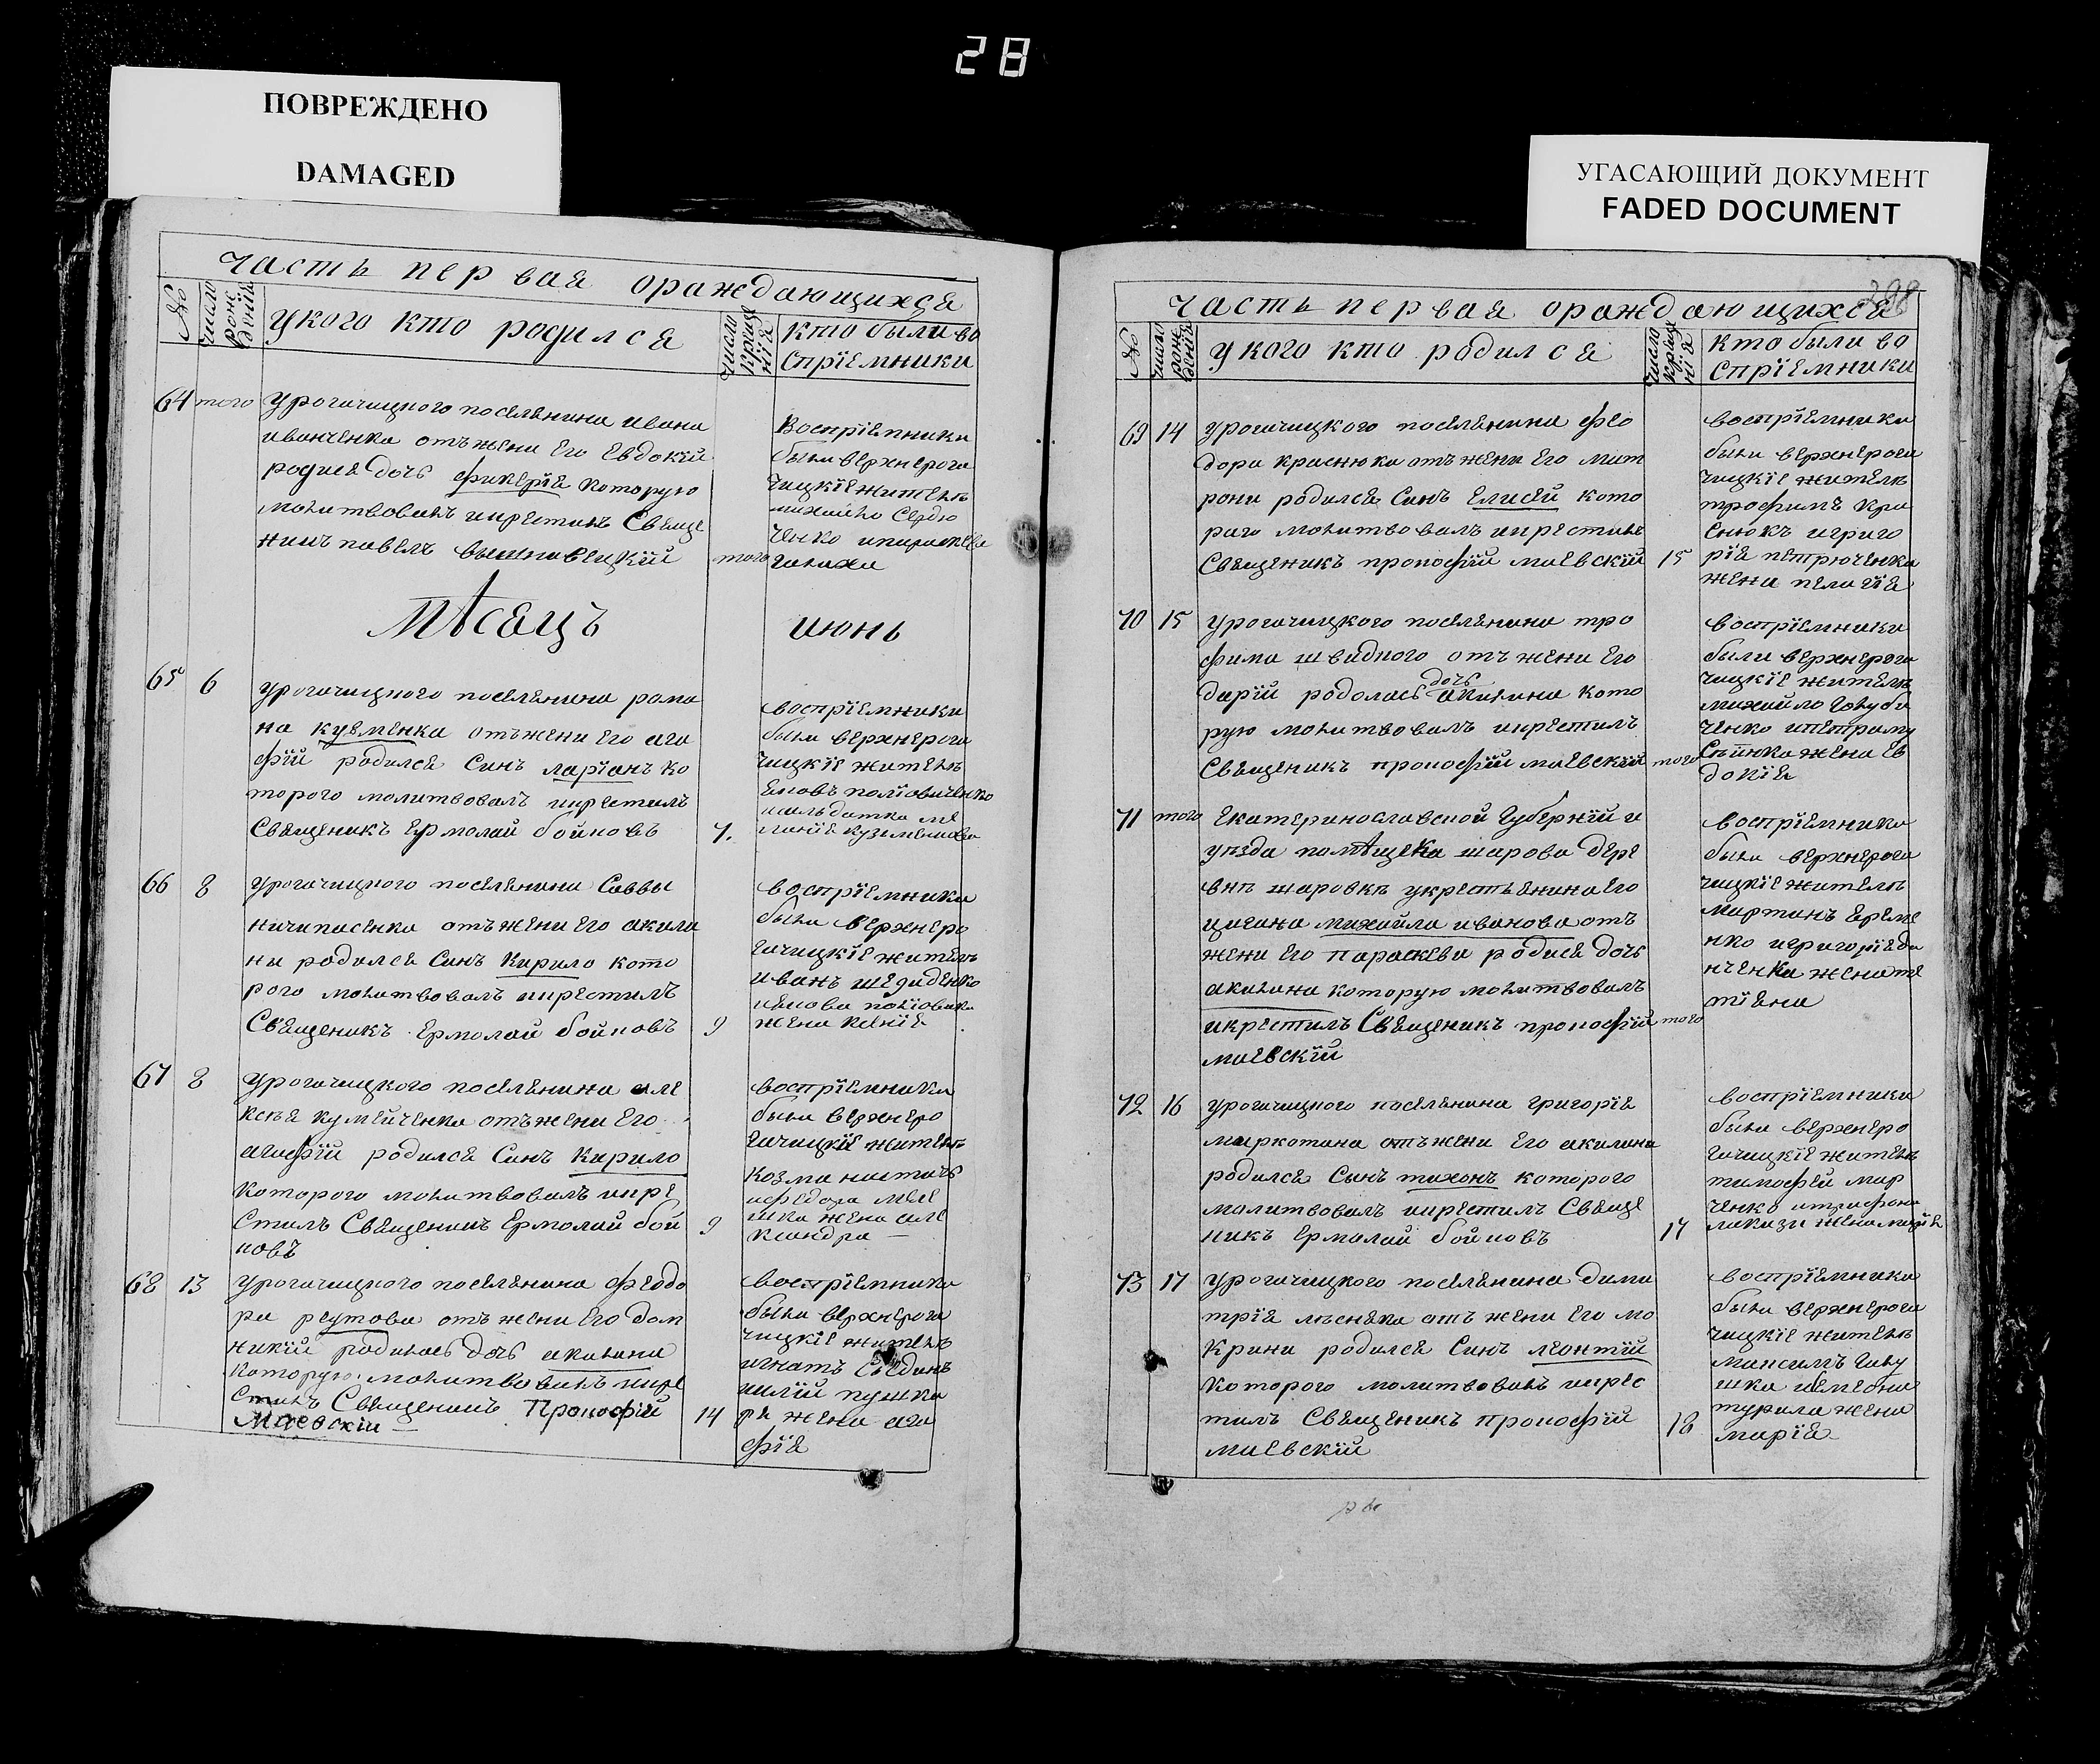 28
ПОВРЕЖДЕНО
DAMAGED
УГАСАЮЩИЙ ДОКУМЕНТ
FADED DOCUMENT
часть первая ораждающихся
№
число рожедонїй
укого кто родился
число крищенїя
кто были во
спрїемники
64
того
урогачицкого поселянина ивана
иванченка отъ жени его евдокїй
родися дочь фикерїя которую
молитвовалъ икрестилъ Свяще
никъ павелъ вышневецкїй
того
Воспрїемники
были верхнерога
чицкїе жителѣ
михайло Сердю
ченко ипараскева
Мѣсяцъ июнь
65
6
урогачицкого поселянина рома
на кузменка отъ жени его ага
фїй родился Синъ ларїанъ ко
торого молитвовалъ икрестилъ
Священикъ Ермолай бойновъ
7.
воспрїемники
были верхнерога
чицкїе жителѣ
66
8
урогачицкого поселянина Саввы
ничипасенка отъ жени его акили
ны родился Синъ Кирило кото
рого молитвовалъ икрестилъ
Священикъ Ермолай бойновъ
9
воспрїемники
были верхнеро
гачицкїе жителѣ
иванъ
жена ксенїя
67
8
урогачицкого поселянина але
ксѣя кумейченка отъ жени его
агафїй родился Синъ Кирило
которого молитвовалъ икре
стилъ Священикъ Ермолай бой
новъ
9
воспрїемники
были верхнеро
гачицкїе жителѣ
козма
ифедора
шка жена але
ксандра
68
13
урогачицкого поселянина феодо
ра реутова отъ жени его дом
никїй родилась дочь акилина
которую молитвовалъ икре
стилъ Священикъ Прокофїй
Маевскїй
14
воспрїемники
были верхнерога
чицкїе жителѣ
игнатъ
пушка
ря жена ага
фїя
часть первая ораждающихся
№
число рожеденїя
укого кто родился
число крищенїя
кто были во
спрїемники
69
14
урогачицкого поселянина фео
дора краснюка отъ жени его мат
рони родился Синъ Елисей кото
раго молитвовалъ икрестилъ
Священикъ прокофїй маевскїй
15
воспрїемники
были верхнерога
чицкїе жителѣ
трофимъ кра
снюкъ игриго
рїя петрюченка
жена пелагїя
70
15
урогачицкого поселянина тро
фима швидного отъ жени его
дарїй родолась дочь акилина кото
рую молитвовалъ икрестилъ
Священикъ прокофїй маевскїй
того
воспрїемники
были верхнерога
чицкїе жителѣ
михайло голуби
ченко
жена ев
докїя
71
того
Екатеринославской губернїй и
уѣзда помѣщека шарова дере
внѣ шаровкѣ укрестьянина его
цигана михайла иванова отъ
жени его параскеви родися дочь
акилина которую молитвовалъ
икрестилъ Священикъ прокофїй
маевскїй
того
воспрїемники
были верхнерога
чицкїе жителѣ
мартинъ Ереме
нко игригорїя да
нченка жена те
тїяна
72
16
урогачицкого поселянина григорїя
маркотана отъ жени его акилина
родился Сынъ тихонъ которого
молитвовалъ икрестилъ Свяще
никъ Ермолай бойновъ
17
воспрїемники
были верхнеро
гачицкїе жителѣ
тимофей мар
ченко итрифона
жена марїя
73
17
урогачицкого поселянина дими
трїя мѣсняка отъ жени его мо
крини родился Синъ леонтїй
которого молитвовалъ икрес
тилъ Священикъ прокофїй
маевскїй
18
воспрїемники
были верхнерога
чицкїе жителѣ
максимъ галу
шка
турила жена
марїя